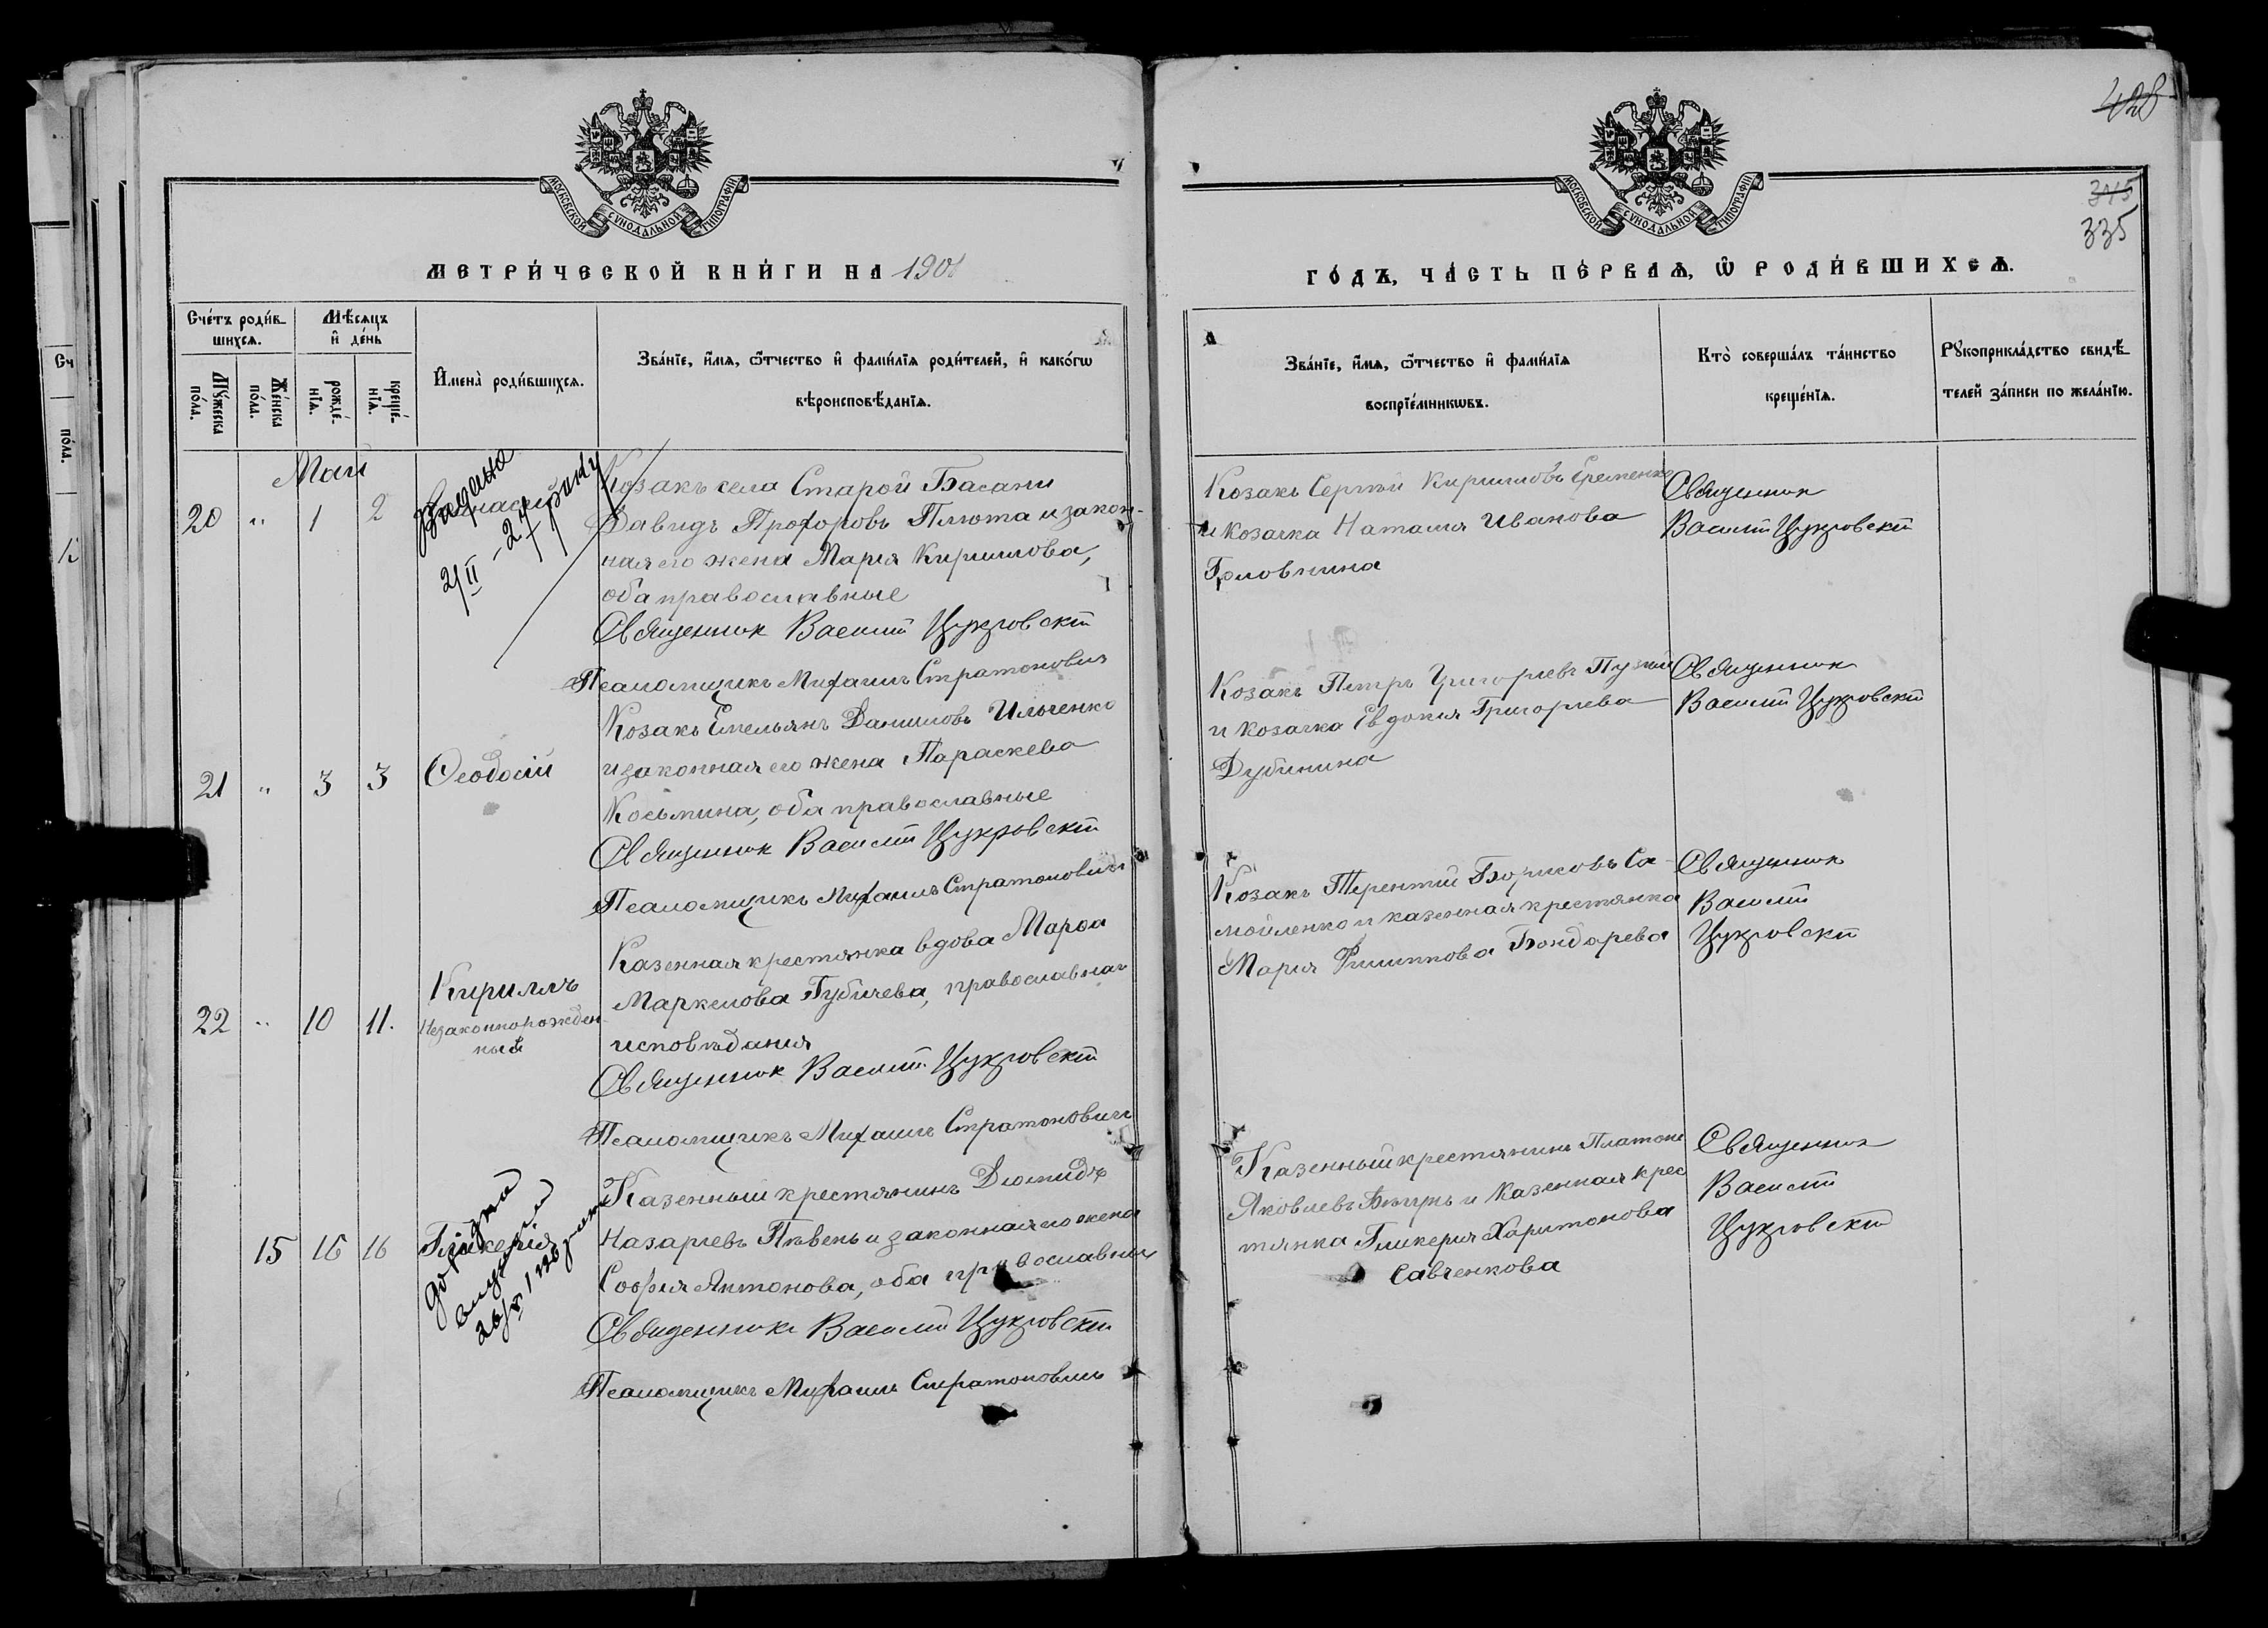 428
МОСКОВСКОЙ СѴНОДАЛЬНОЙ ТИПОГРАФІИ
МОСКОВСКОЙ СѴНОДАЛЬНОЙ ТИПОГРАФІИ
345
335
МЕТРИ́ЧЕСКОЙ КНИ́ГИ НА 1901
ГО́ДЪ, ЧА́СТЬ ПЕ́РВАѦ, Ѡ҆ РОДИ́ВШИХСѦ.
Сче́тъ роди́в-
шихсѧ.
Мꙋ́жеска
по́ла.
Же́нска
по́ла.
Мѣ́сѧцъ
и҆ де́нь
рожде́-
нїѧ.
креще́-
нїѧ.
И҆мена̀ роди́вшихсѧ.
Зва́нїе, и҆́мѧ, ѻ҆́тчество и҆ фами́лїѧ роди́телей, и҆ како́гѡ
вѣроисповѣ́данїѧ.
Зва́нїе, и҆́мѧ, ѻ҆́тчество и҆ фами́лїѧ
воспрїе́мникѡвъ.
Кто̀ соверша́лъ та́инство
креще́нїѧ.
Рꙋкоприкла́дство свидѣ́-
телей за́писи по жела́нїю.
Май
20 " 1 2
Видана
2/II - 27 року
Козакъ села Старой Басани
Давидъ Прохоровъ Плюта и закон-
ная его жена Марія Кириллова,
оба православные
Священник Василій Цукровскій
Псаломщикъ Михаилъ Стратонович
Козакъ Сергѣй Кирилловъ Еременко
и козачка Наталія Иванова
Головнина
Священник
Василій Цукровскій
21 " 3 3 Ѳеодосій
Козакъ Емельянъ Даниловъ Ильченко
и законная его жена Параскева
Косьмина, оба православные
Священник Василій Цукровскій
Псаломщикъ Михаилъ Стратонович
Козакъ Петръ Григорьевъ
и козачка Евдокія Григорьева
Дубинина
Священник
Василій Цукровскій
22 " 10 11. Кириллъ
Незаконнорожден-
ный
Казенная крестьянка вдова Марѳа
Маркелова Губичева, православнаго
исповѣданія
Священник Василій Цукровскій
Псаломщикъ Михаилъ Стратонович
Козакъ Терентій Борисовъ Са-
мойленко и казенная крестьянка
Марія Филиппова Бондарева
Священник
Василій
Цукровскій
15 16 16 Гликерія
Казенный крестьянинъ Діомидъ
Назарьевъ Пѣвень и законная его жена
Софія Антонова, оба православные
Священникъ Василій Цукровскій
Псаломщикъ Михаилъ Стратонович
Казенный крестьянинъ Платонъ
Яковлевъ и казенная крес
тьянка Гликерія Харитонова
Савченкова
Священник
Василій
Цукровскій